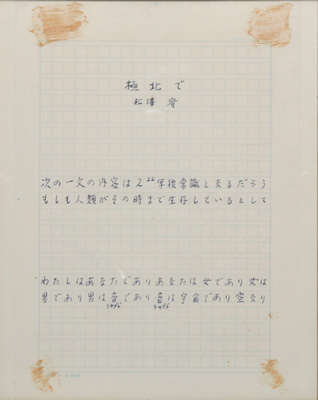 極北で
松澤宥
次の一文の内容は2²²年後常識となるだろう
もしも人類がその時まで生存しているとして
わたしはあなたでありあなたは女であり女は
男であり男は音であり音は宇宙であり空なり